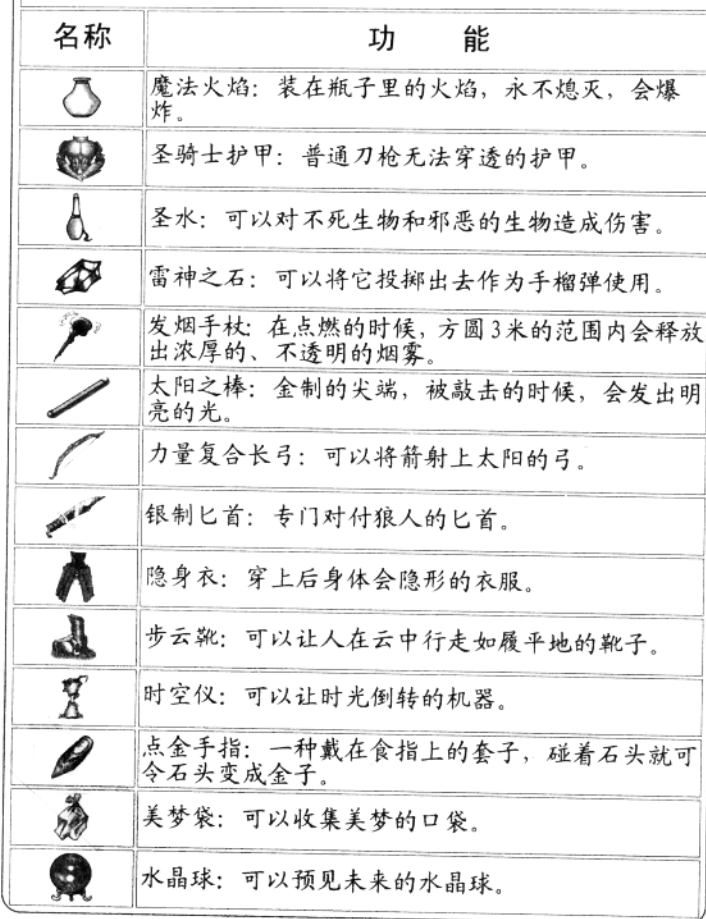 名称 功 能
魔法火焰：装在瓶子里的火焰，永不熄灭，会爆
炸。
圣骑士护甲：普通刀枪无法穿透的护甲。
圣水：可以对不死生物和邪恶的生物造成伤害。
雷神之石：可以将它投掷出去作为手榴弹使用。
发烟手杖：在点燃的时候，方圆3米的范围内会释放
出浓厚的、不透明的烟雾。
太阳之棒：金制的尖端，被敲击的时候，会发出明
亮的光。
力量复合长弓：可以将箭射上太阳的弓。
银制匕首：专门对付狼人的匕首。
隐身衣：穿上后身体会隐形的衣服。
步云靴：可以让人在云中行走如履平地的靴子。
时空仪：可以让时光倒转的机器。
点金手指：一种戴在食指上的套子，碰着石头就可
令石头变成金子。
美梦袋：可以收集美梦的口袋。
水晶球：可以预见未来的水晶球。